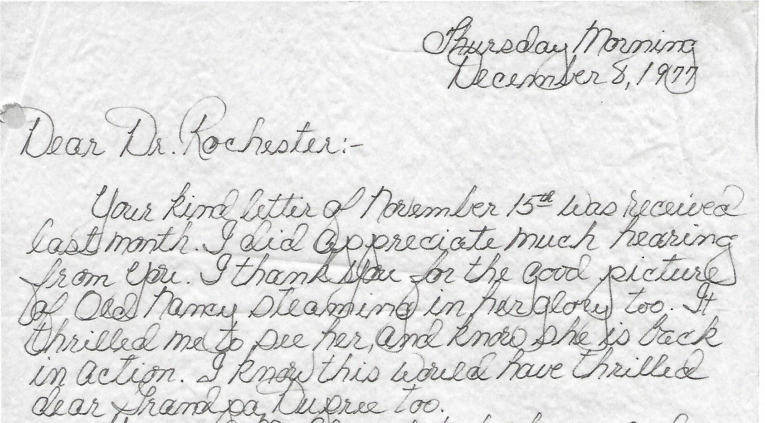 Thursday Morning
December 8, 1977
Dear Dr. Rochester:-
Your kind letter of November 15th was received
last month. I did appreciate much hearing
from you. I thank you for the good picture
of Old Nancy steaming in her glory too. It
thrilled me to see her, and know she is back
in action. I know this would have thrilled
dear Grandpa Dupree too.